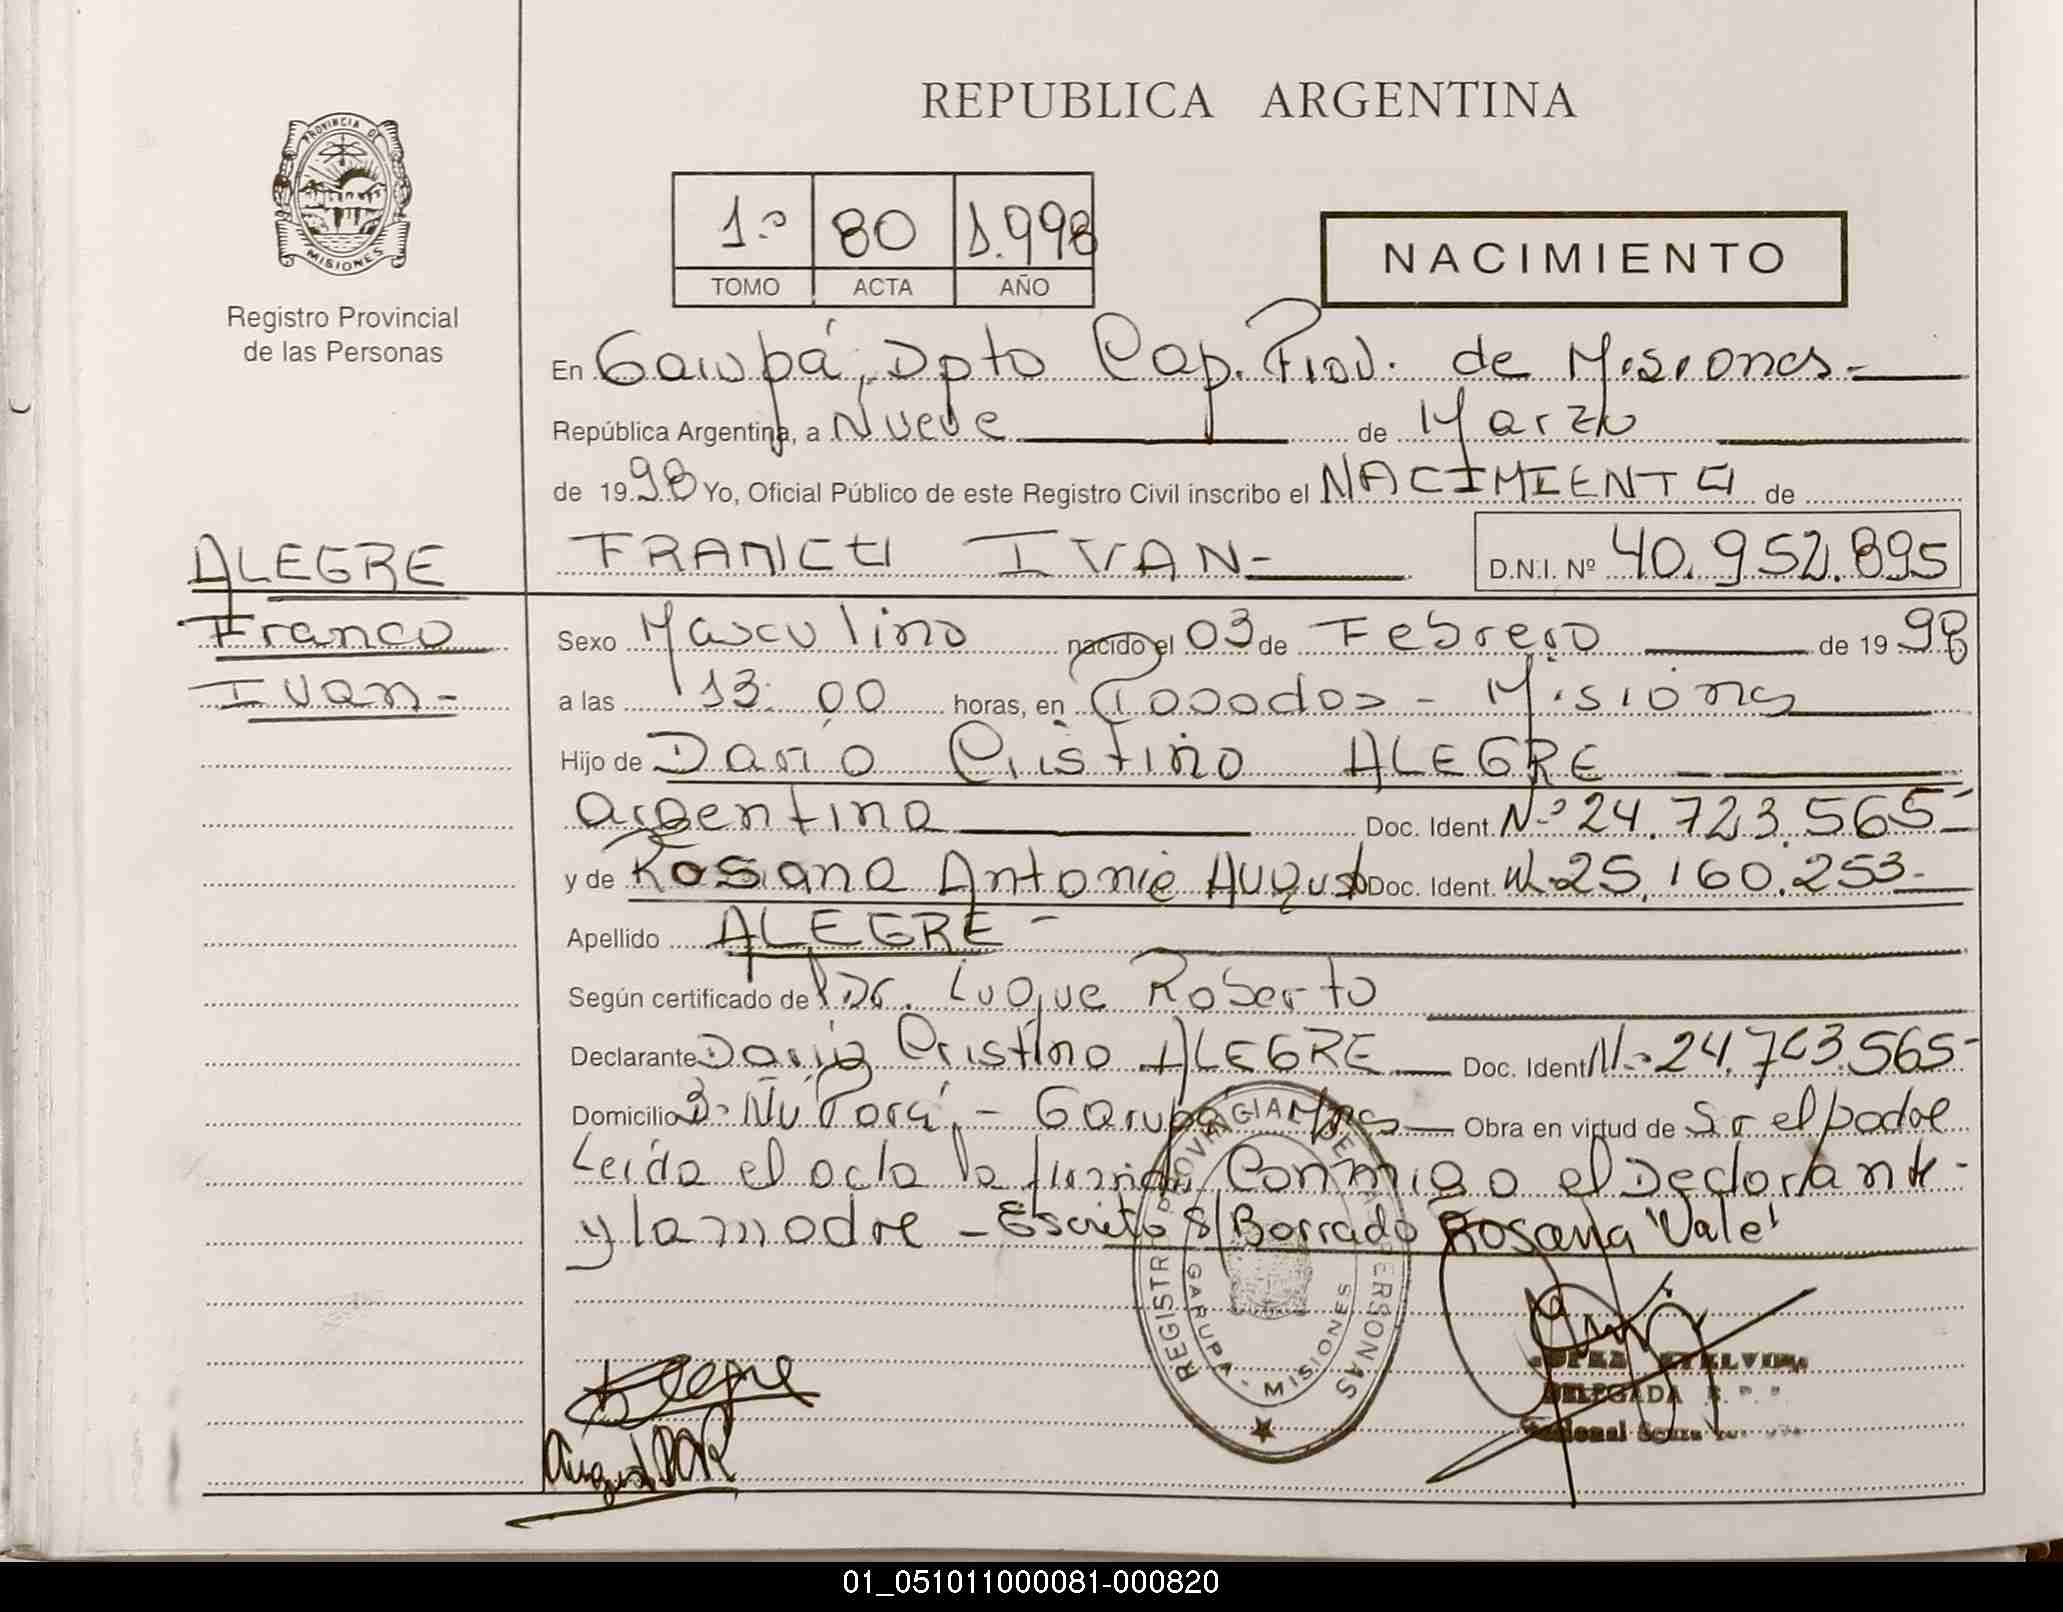 REPUBLICA ARGENTINA
PROVINCIA DE
MISIONES
Registro Provincial
de las Personas
1.º 80 1.998
TOMO ACTA AÑO
NACIMIENTO
En Garupá, Dpto Cap. Prov. de Misiones.-
República Argentina, a Nueve de Marzo
de 1998 Yo, Oficial Público de este Registro Civil inscribo el NACIMIENTO de
FRANCO IVAN- D.N.I. Nº 40.952.895
ALEGRE
Franco
Ivan-
Sexo Masculino nacido el 03 de Febrero de 1998
a las 13:00 horas, en Posadas - Misiones
Hijo de Dario Cristino ALEGRE
argentino Doc. Ident. Nº 24.723.565-
y de Rosana Antonia August Doc. Ident. Nº 25.160.253-
Apellido ALEGRE-
Según certificado de Dr. Luque Roberto
Declarante Dario Cristino ALEGRE Doc. Ident. Nº 24.723.565-
Domicilio Bº Ñu Porá - Garupá Mnes Obra en virtud de Sr el padre
Leida el acta la firman Conmigo el Declarante-
y la madre - Escrito S/Borrado Rosana "Vale"
REGISTRO PROVINCIAL DE PERSONAS
GARUPA - MISIONES
Alegre
August
DELEGADA R. P. P.